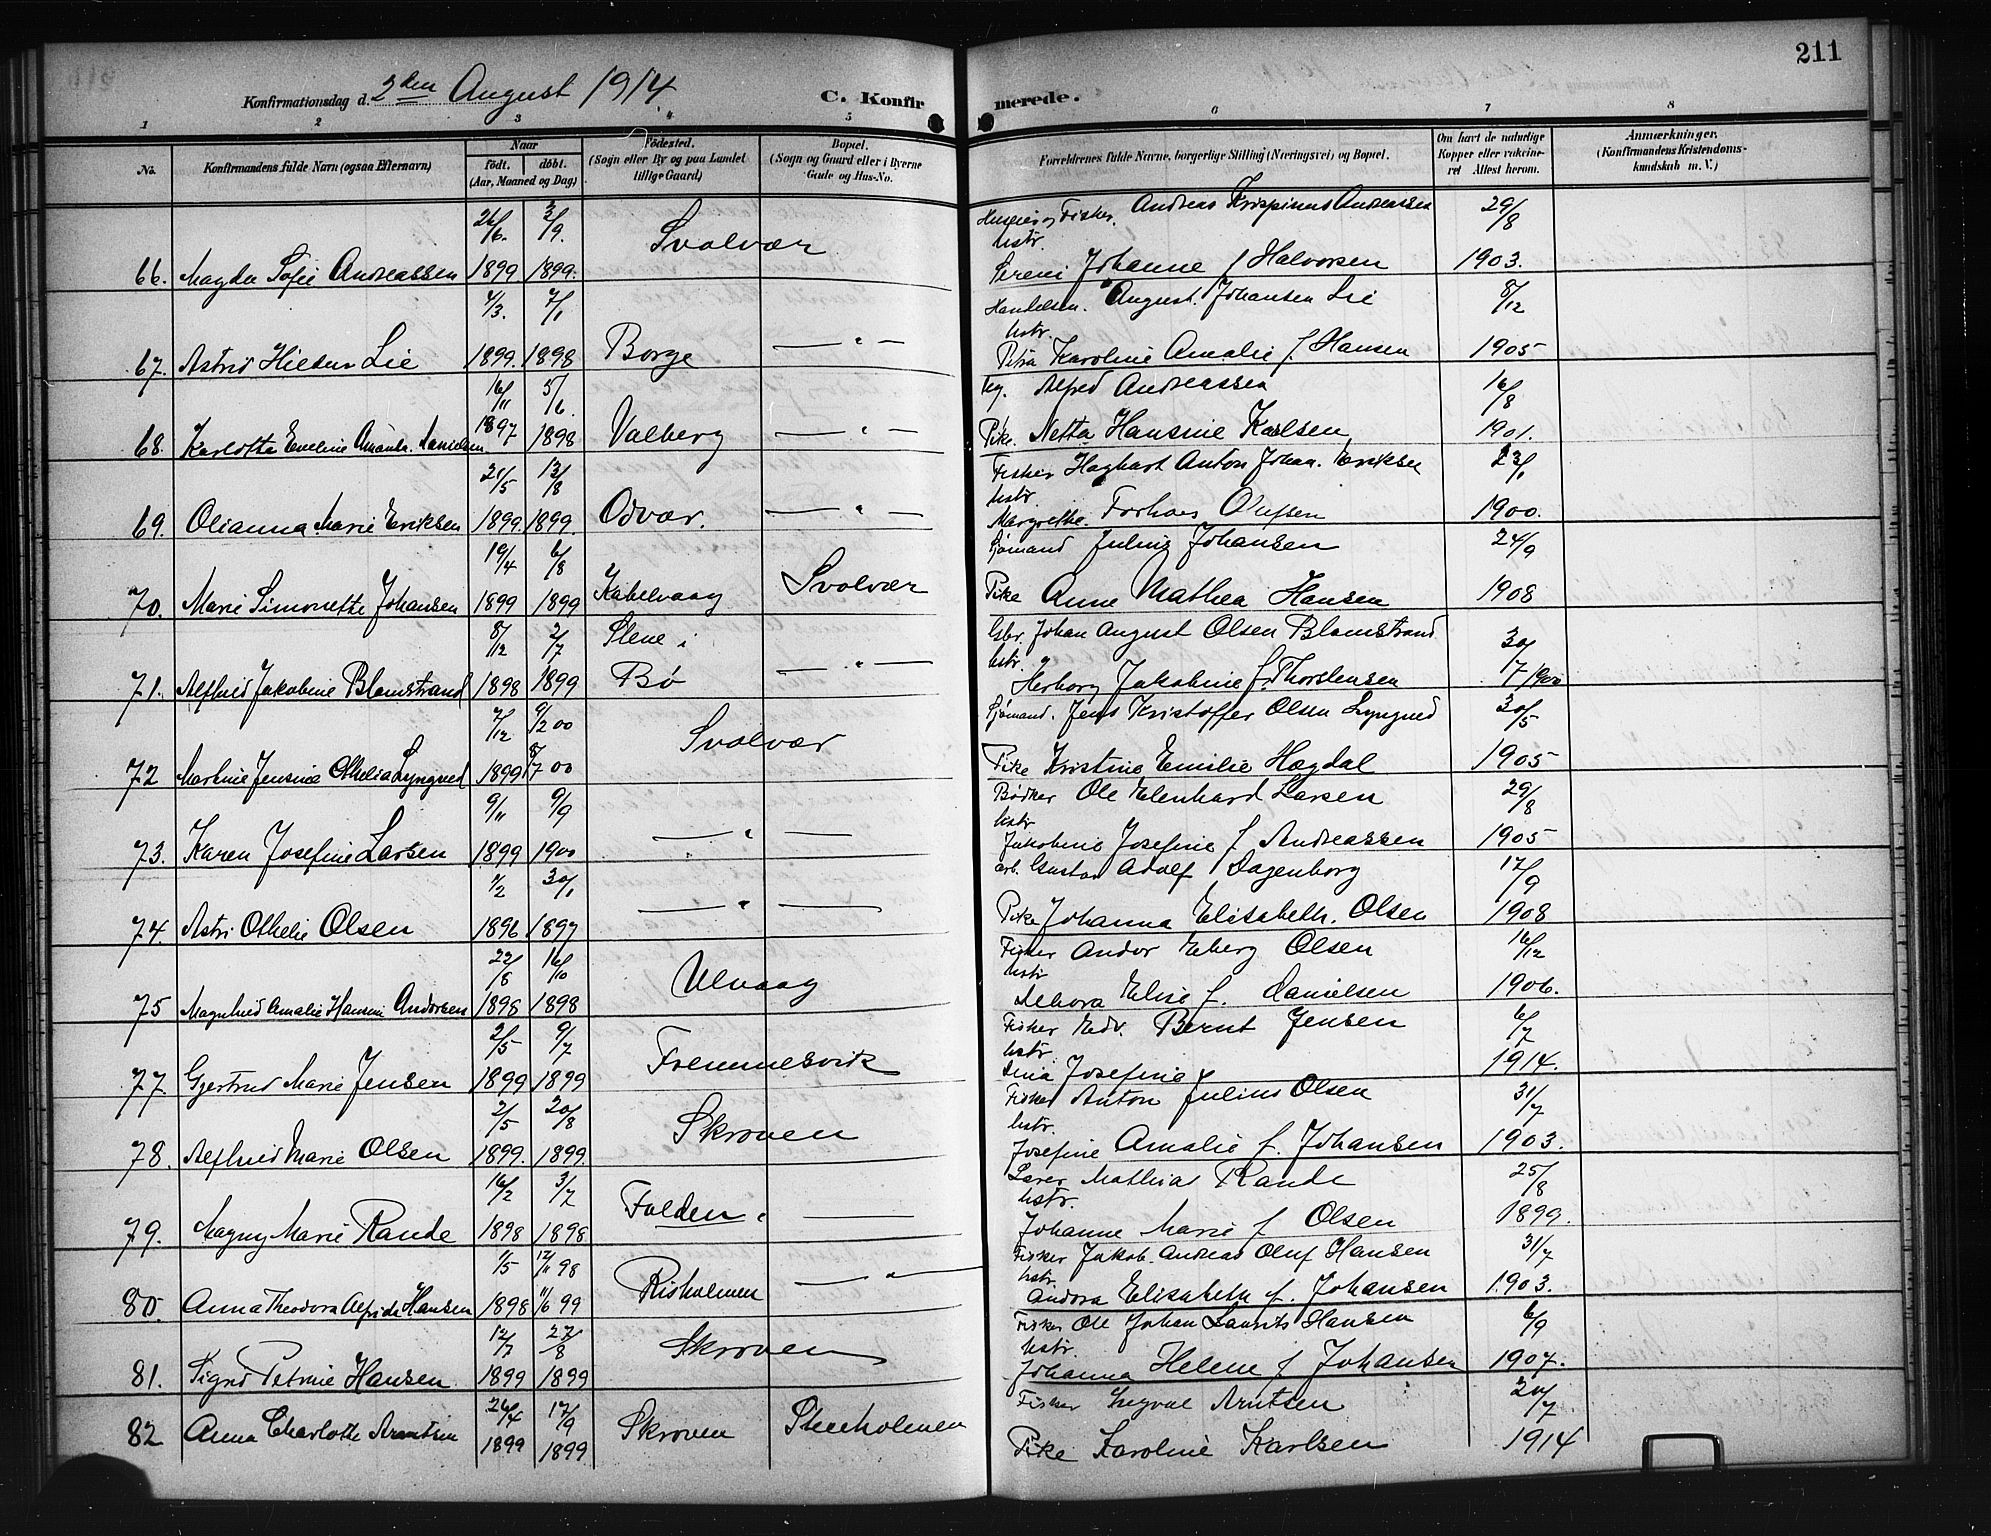 211
Konfirmationsdag d. 2den August 1914. C. Konfirmerede.
1 2 3 4 5 6 7 8
No. Konfirmandens fulde Navn (ogsaa Efternavn) Naar født. døbt. (Aar, Maaned og Dag) Fødested. (Sogn eller By og paa Landet tillige Gaard) Bopæl. (Sogn og Gaard eller i Byerne Gade og Hus-No. Forældrenes fulde Navne, borgerlige Stilling (Næringsvei) og Bopæl. Om havt de naturlige Kopper eller vakcineret Attest herom. Anmærkninger. (Konfirmandens Kristendomskundskab m. V.)
26/6. 3/9. Svolvær Fisker. Andreas Krispinus Andreassen 29/8
hstr.
66. Magda Sofie Andreassen 1899 1899. Sereni Johanne f Halvorsen 1903.
4/3. 7/1 Handelsm. August. Johansen Lie 8/12
hstr.
67. Astrid Hildur Lie 1899. 1898 Borge — " — Petra Karoline Amalie f. Hansen 1905
16/11 5/6 Alfred Andreassen 16/8
68. Karlotta Eveline Amanda Danielsen 1897 1898 Valberg — " — Pike. Netta Hansine Karlsen 1901.
21/5 13/8 Fisker Haghart Anton Johan. Eriksen 23/1
hstr
69. Olianna Marie Eriksen 1899. 1899. Odvær. — " — Margrethe Olufsen 1900.
19/4 6/8 Sjømand Julius Johansen 24/9
70. Marie Simonette Johansen 1899 1899 Kabelvaag Svolvær Pike Anne Mathea Hansen 1908
8/12 2/7 Stene i Gbr. Johan August Olsen Blomstrand 30/7 1900
hstr.
71. Alfhild Jakobine Blomstrand 1898 1899 Bø — " — Herborg Jakobine f. Thorstensen
7/12 9/2 00 Svolvær Sjømand. Jens Kristoffer Olsen Lyngved 30/5
72 Martine Jensine Othelia Lyngved 1899 8/7 00 Pike Kristine Emilie Hagdal 1905
9/11 9/9 Bødker Ole Edenhard Larsen 29/8
hstr
73. Karen Josefine Larsen 1899 1900 — " — Jakobine Josefine f Andreassen 1905
1/2 30/1 arb. Gustav Adolf Dagenborg 17/9
74. Astri Othelie Olsen 1896 1897 — " — Pike Johanna Elisabeth. Olsen 1908
22/8 16/10 Ulvaag Fisker Andor Eberg Olsen 16/12
hstr
75 Magnhild Amalie Hansine Andorsen 1898 1898 Debora Elise f. Danielsen 1906.
2/5 9/7 Fremmesvik Fisker Edv. Bernt Jensen 6/7
hstr.
77. Gjertrud Marie Jensen 1899 1899 Dina Josefine f 1914.
2/5 20/8 Skroven Fisker Anton Julius Olsen 31/7
hstr.
78. Alfhild Marie Olsen 1899. 1899. Josefine Amalie f. Johansen 1903.
16/2 3/7 Folden. — Lærer Mathias Rande 25/8
hstr.
79. Magny Marie Rande 1898 1898 Johanne Marie f Olsen 1899.
1/5 12/11 98 Risholmen — " — Fisker Jakob. Andreas Oluf Hansen 31/7
hstr.
80. Anna Theodora Alfrida Hansen 1898 11/6 99 Andora Elisabeth f. Johansen 1903.
12/7 27/8 Skroven Fisker Ole Johan Laurits Hansen 6/9
hstr.
81. Sigrid Petrine Hansen 1899 1899 Johanna Helene f Johansen 1907.
26/4 17/9 Fisker Ingval Arntsen 20/7
82 Anna Charlotte Arntsen 1899 1899 Skroven Steenholmen Pike Karoline Karlsen 1914